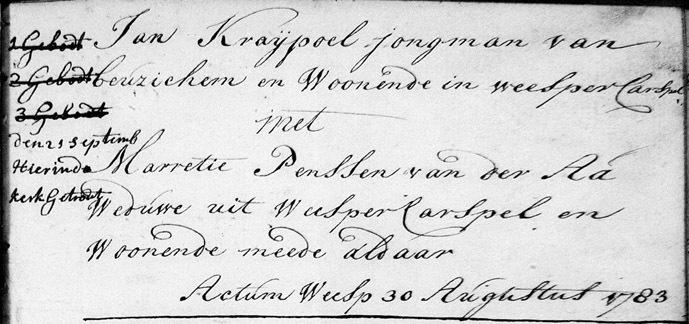 1 Gebodt Jan Kraijpoel jongman van
2 Gebodt beuzichem en Woonende in weesper Carspel
3 Gebodt met
den 21 Septemb
Hier in de Marretie Penssen van der Aa
kerk Getrout Weduwe uit Weesper Carspel en
Woonende meede aldaar
Actum Weesp 30 Augustus 1783